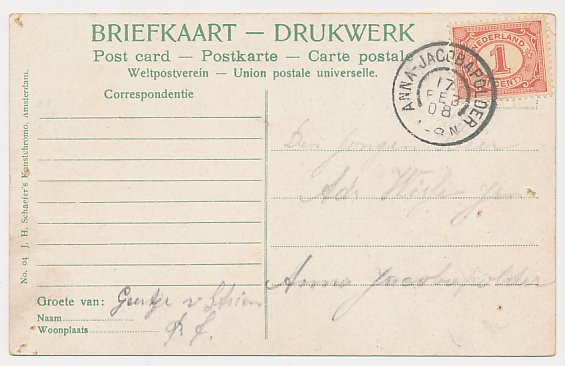 BRIEFKAART — DRUKWERK
Post card — Postkarte — Carte postale
Weltpostverein — Union postale universelle.
Correspondentie
NEDERLAND
1
CENT
ANNA-JACOBAPOLDER
17
FEB
08
No. 04 J. H. Schaefer's Kunstchromo, Amsterdam.
Den
Adr
Anna Jacobapolder
Groete van: Geertje v
Naam
Woonplaats